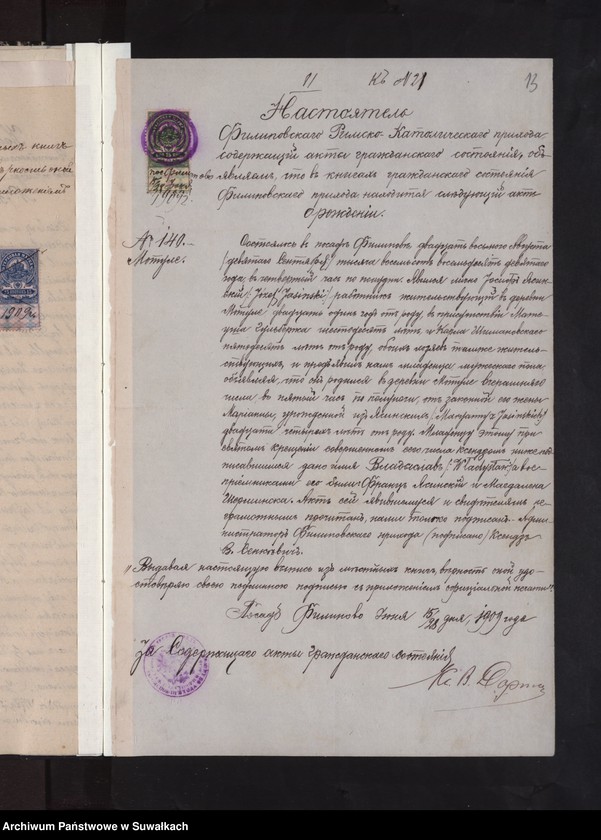 VI Къ №21
13
Настоятель
Филиповскаго Римско-Католическаго прихода
содержащій акты гражданскаго состоянія, объ-
являетъ, что въ книгахъ гражданскаго состоянія
Филиповскаго прихода находится слѣдующій актъ
о рожденіи.
1909г.
№ 140.
Мотуле.
Состоялось въ посадѣ Филиповѣ двадцать восьмого Августа
/девятаго Сентября/ тысяча восемьсотъ восемьдесятъ девятаго
года, въ четвертомъ часу по полудни. Явился лично Іосифъ Ясин-
скій /Józef Jasiński/ работникъ жительствующій въ деревни
Мотуле двадцать одинъ годъ отъ роду, въ присутствіи Мат-
шестьдесятъ лѣтъ и Шимановскаго
пятьдесятъ лѣтъ отъ роду, обоихъ также житель-
ствующихъ, и предъявилъ намъ младенца мужескаго пола
объявляя, что онъ родился въ деревни Мотуле вчерашняго
числа, въ пятый часъ по полуночи, отъ законной его жены
Маріанны, урожденной изъ Ясинскихъ /Maryanny z Jasińskich/
двадцати четырехъ лѣтъ отъ роду. Младенцу этому при
святомъ крещеніи совершенномъ сего числа Ксендзомъ ниже под-
писавшимся дано имя Владиславъ, а вос-
пріемниками его были Францъ Ясинскій и Магдалена
Актъ сей явившемуся и свидѣтелямъ не-
грамотнымъ прочитанъ, нами только подписанъ. Адми-
нистраторъ Филиповскаго прихода /подписано/ Ксендзъ
В. Сенкевичъ.
Выдавая настоящую выпись изъ мѣстныхъ книгъ, вѣрность оной удо-
стовѣряю своею подписью съ приложеніемъ оффиціальной печати.
Посадъ Филипово Іюня 15/28 дня, 1909 года
За Содержащаго акты гражданскаго состоянія
Кс. В.
1909г.
Archiwum Państwowe w Suwałkach